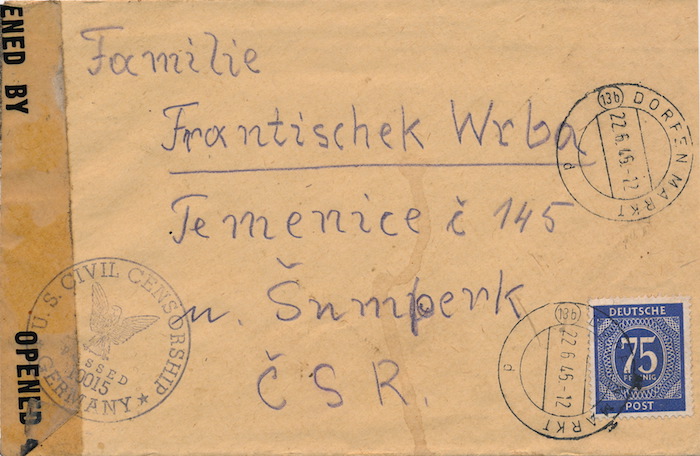 Familie
Frantischek Wrba
Temenice č 145
u. Šumperk
ČSR.
ENED BY
OPENED
U.S. CIVIL CENSORSHIP
PASSED
10015
GERMANY
13b DORFEN MARKT
22.6.46.-12
d
13b
22.6.46-12
MARKT
d
DEUTSCHE
75
PFENNIG
POST